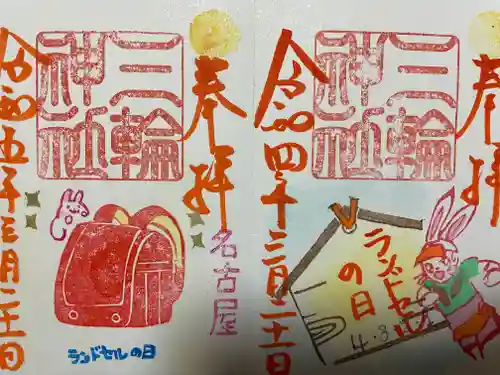 奉拝
三輪
神社
ランドセル
の日
令和四年三月二十一日
奉拝
名古屋
三輪
神社
ランドセルの日
令和五年三月二十一日